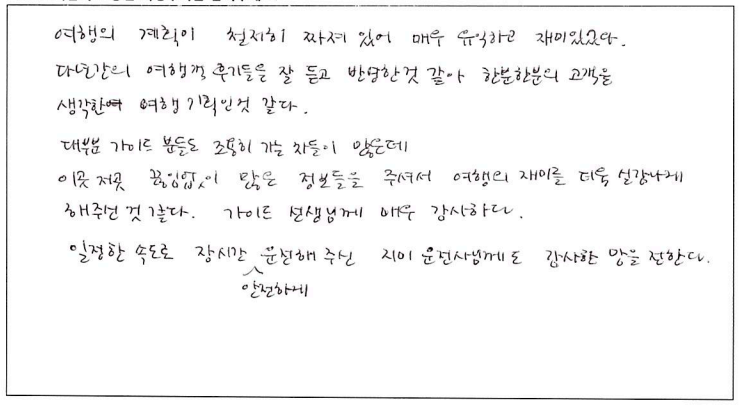 여행의 계획이 철저히 짜져 있어 매우 유익하고 재미있었다.
다년간의 여행객 후기들을 잘 듣고 반영한것 같아 한분한분의 고객을
생각한 여행기획인것 같다.
대부분 가이드 분들도 조용히 가는 차들이 많은데
이곳 저곳 끊임없이 많은 정보들을 주셔서 여행의 재미를 더욱 실감나게
해주신 것 같다. 가이드 선생님께 매우 감사하다.
일정한 속도로 장시간 운전해 주신 운전사님께도 감사한 맘을 전한다.
안전하게